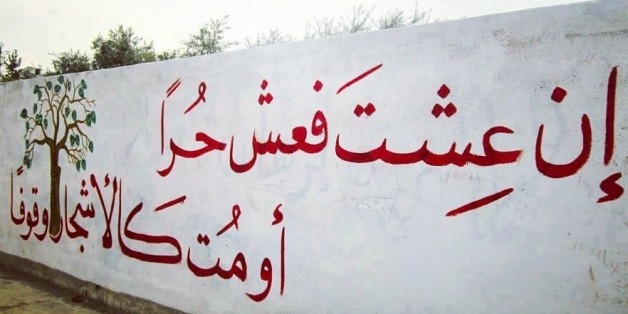 إن عشتَ فعش حُراً
أو مُت كَالأشجار وقوفًا